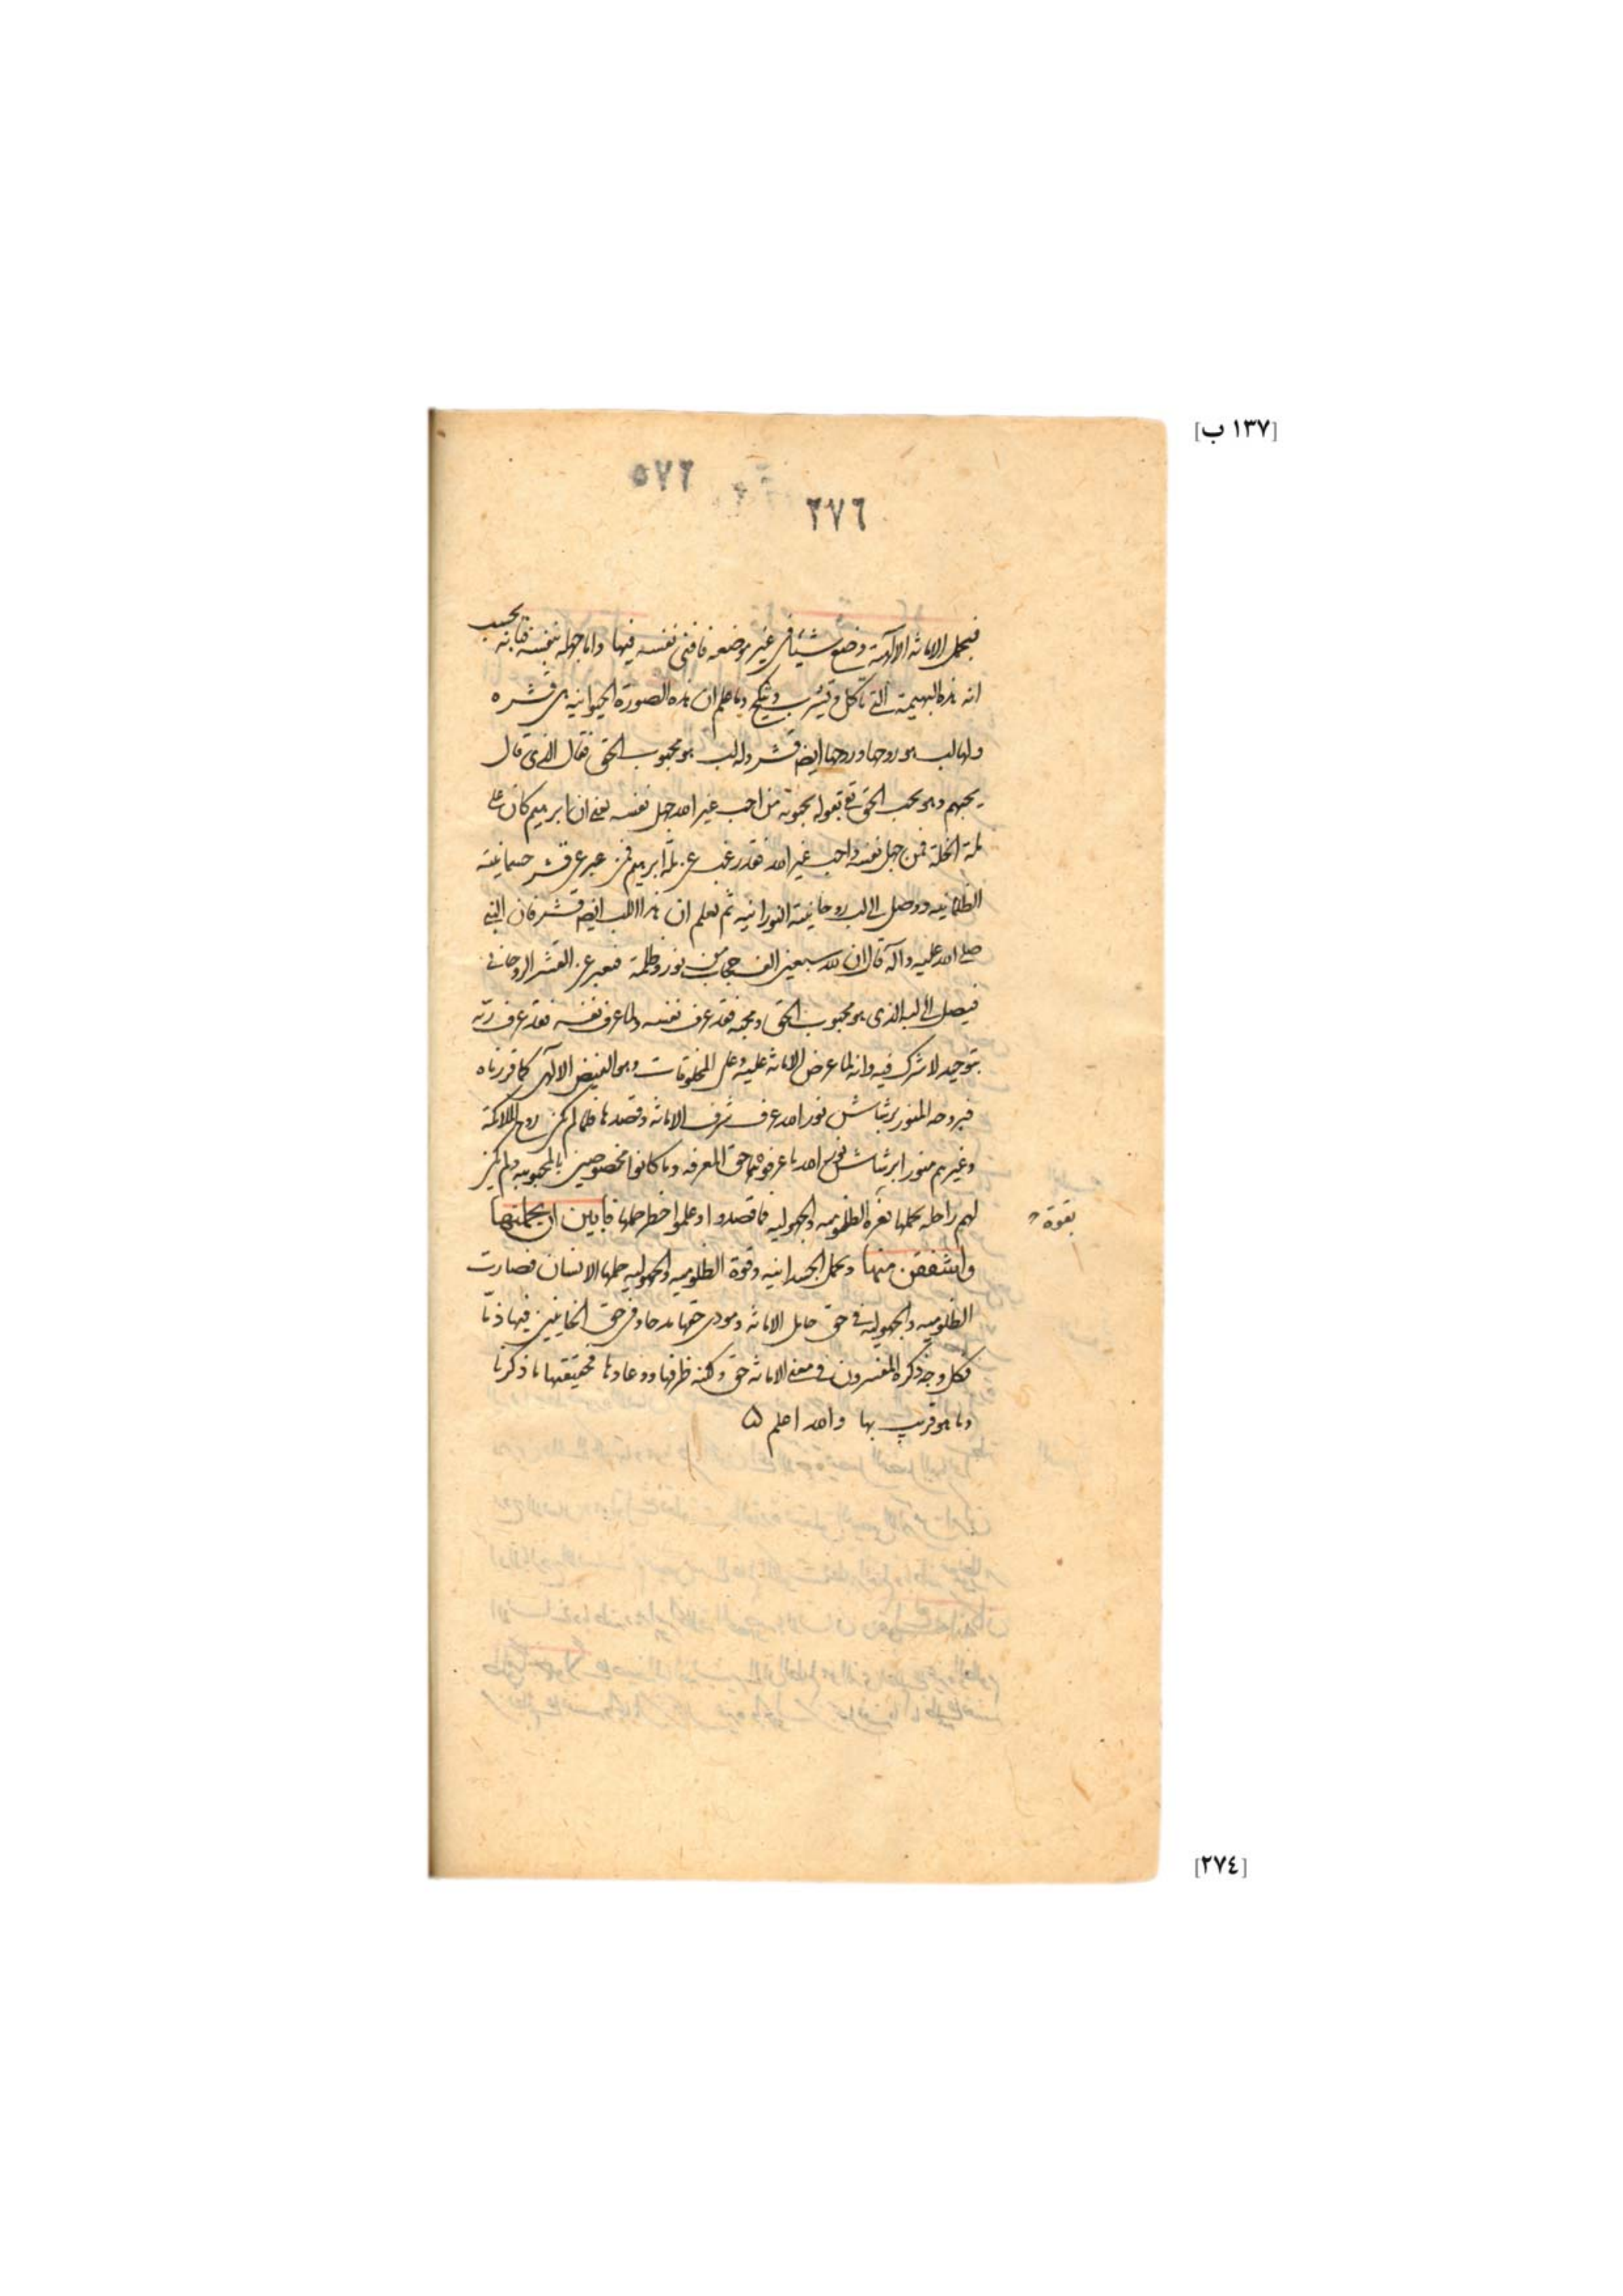 [١٣٧ ب]
٥٧٦
٢٧٦
فبحمل الامانه الالهية وضع شيئا فى غير موضعه فافنى نفسه فيها واما جهله بنفسه فبانه يحسب
انه هذه البهيمة التى تاكل وتشرب وتنكح وما علم ان هذه الصورة الحيوانيه هى قشره
ولها لب هو روحها وروحها ايضا قشر وله لب هو محبوب الحق فقال الذى قال
يحبهم وهو محب الحق بقوله يحبونه فمن احب غير الله جهل نفسه يعنى ان ابرهيم كان على
ملة الخلة فمن جهل نفسه واحب غير الله فقد رغب عن ملة ابرهيم فمن عبر عن قشر جسمانيته
الظلمانيه ووصل الى لب روحانيته النورانيه ثم يعلم ان هذا اللب ايضا قشر فان النبى
صلى الله عليه وآله قال ان لله سبعين الف حجاب من نور وظلمة فيعبر عن القشر الروحانى
فيصل الى لبه الذى هو محبوب الحق ومحبه فقد عرف نفسه ولما عرف نفسه فقد عرف ربه
بتوحيد لا شرك فيه وانه لما عرض الامانه عليه وعلى المخلوقات وهو الفيض الالهى كما قررناه
فبروحه المنور برشاش نور الله عرف شرف الامانه وقصدها فلما لم يكن روح الملائكة
وغيرهم منورا برشاش نور الله ما عرفوها حق المعرفه وما كانوا مخصوصين بالمحبوبيه ولم يكن
لهم راحله يحملها الظلوميه والجهوليه فما قصدوا وعلموا خطر حملها فابين ان يحملنها
بقوة
واشفقن منها وبحمل الجسدانيه وقوة الظلوميه والجهوليه حملها الانسان فصارت
الظلوميه والجهوليه فى حق حامل الامانه ومودى حقها مدحا وفى حق الخاينين فيها ذما
فكل وجه ذكره المفسرون فى معنى الامانه حق ولكنه ظرفها ووعاءها فحقيقتها ما ذكرنا
وما هو قريب بها والله اعلم
[٢٧٤]